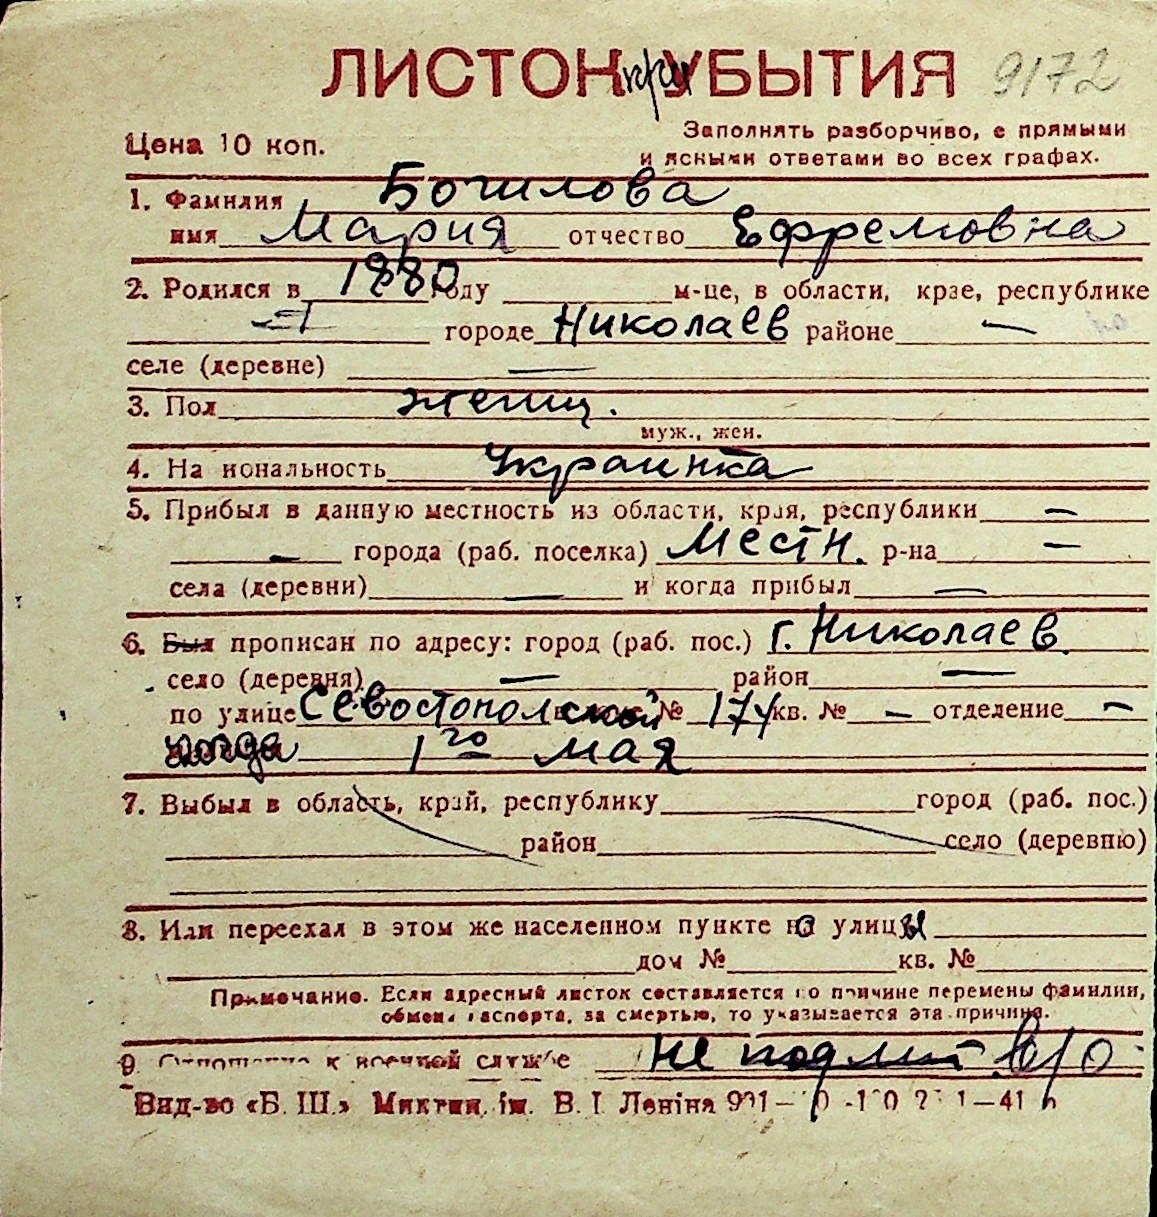 ЛИСТОК при УБЫТИЯ 9172
Цена 10 коп.
Заполнять разборчиво, с прямыми
и ясными ответами во всех графах.
1. Фамилия Богилова
имя Мария отчество Ефремовна
2. Родился в 1880 году м-це, в области, крае, республике
городе Николаев районе —
селе (деревне) —
3. Пол женщ.
муж., жен.
4. Национальность Украинка
5. Прибыл в данную местность из области, края, республики —
— города (раб. поселка) Местн. р-на —
села (деревни) — и когда прибыл —
6. Был прописан по адресу: город (раб. пос.) г. Николаев
село (деревня) — район —
по улице Севостопольской № 174 кв. № — отделение —
когда 1го мая
7. Выбыл в область, край, республику город (раб. пос.)
район село (деревню)
8. Или переехал в этом же населенном пункте на улицы
дом № кв. №
Примечание. Если адресный листок составляется по причине перемены фамилии,
обмена паспорта, за смертью, то указывается эта причина.
9. Отношение к военной службе не подлит в/о
Вид-во «Б. Ш.» Микткн. ім. В. І. Леніна